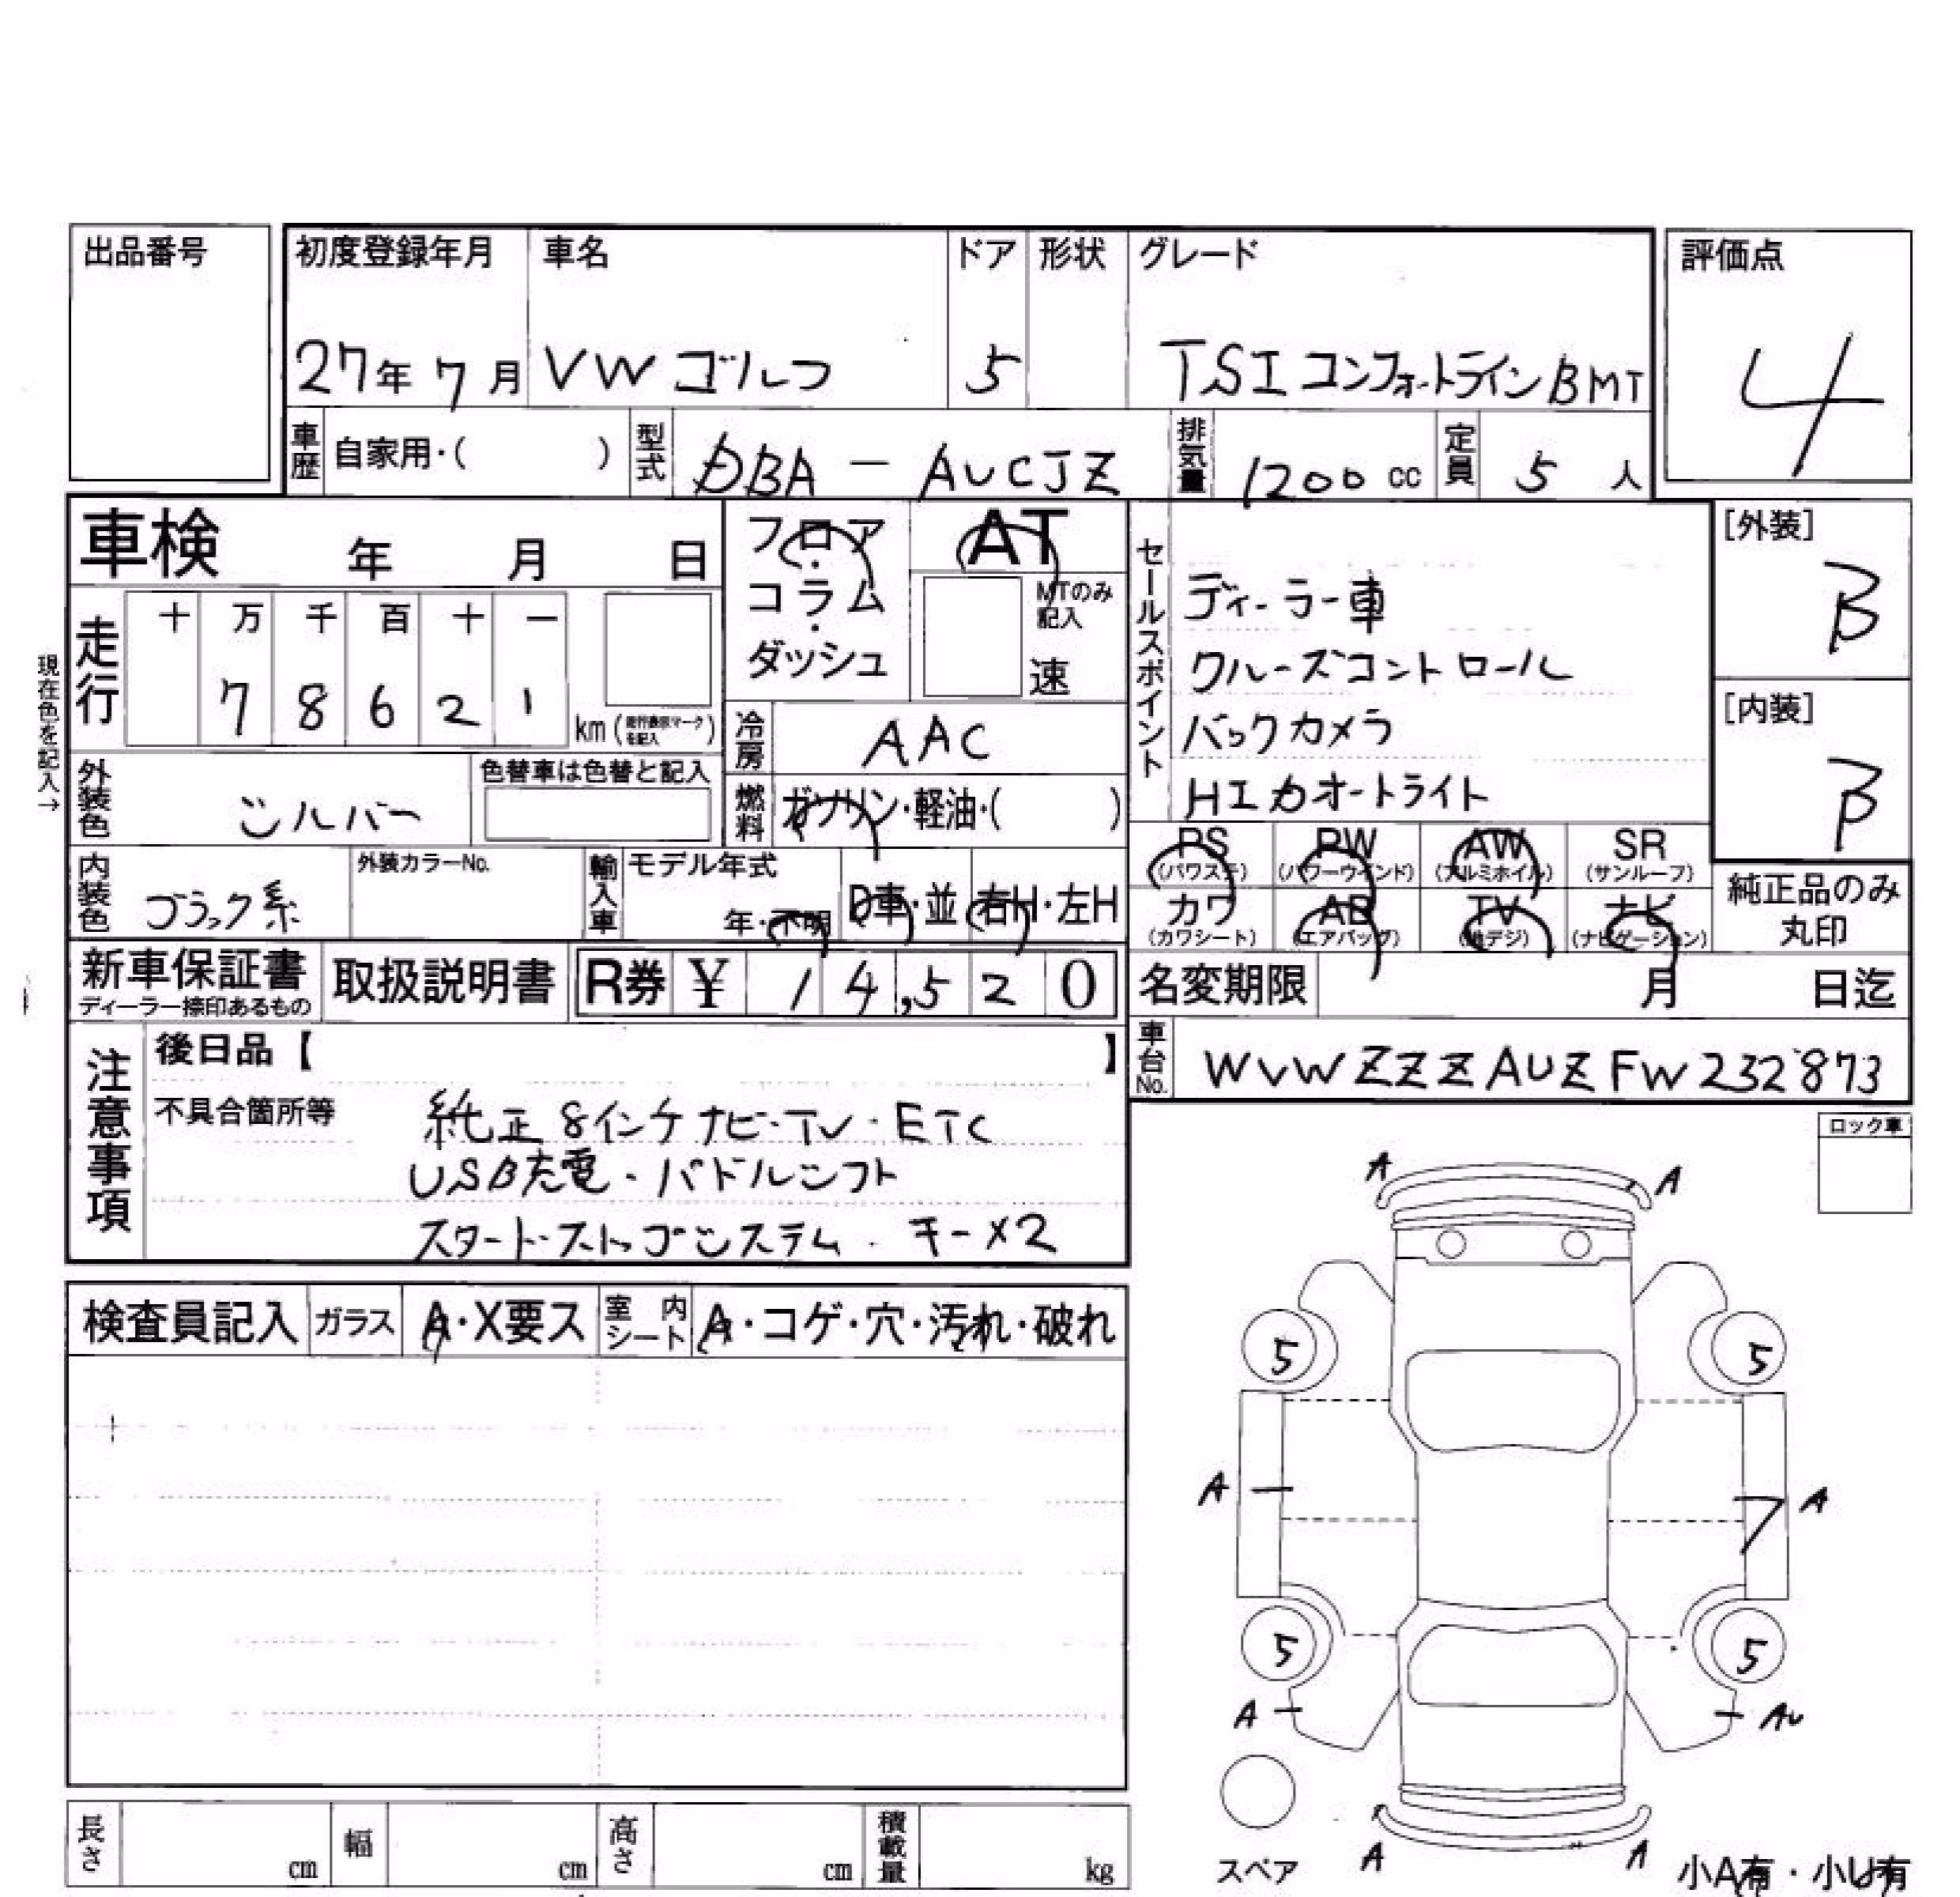 出品番号
初度登録年月 車名 ドア 形状 グレード 評価点
27年 7月 VW ゴルフ 5 TSI コンフォートライン BMT 4
車歴 自家用・( ) 型式 DBA - AUCJZ 排気量 1200 cc 定員 5 人
車検 年 月 日
フロア・コラム・ダッシュ
AT
MTのみ記入
速
現在色を記入→
走行 十 万 千 百 十 一
7 8 6 2 1 km (走行表示マークを記入)
冷房 AAC
外装色 シルバー 色替車は色替と記入
燃料 ガソリン・軽油・( )
内装色 ブラック系 外装カラーNo. 輸入車 モデル年式 年・不明 D車・並 右H・左H
セールスポイント
ディーラー車
クルーズコントロール
バックカメラ
HIDオートライト
[外装] B
[内装] B
PS (パワステ) PW (パワーウインド) AW (アルミホイル) SR (サンルーフ)
カワ (カワシート) AB (エアバッグ) TV (地デジ) ナビ (ナビゲーション)
純正品のみ丸印
新車保証書 ディーラー捺印あるもの 取扱説明書 R券 ¥ 14,520
名変期限 月 日迄
車台No. WVWZZZAUZFW232873
注意事項
後日品【 】
不具合箇所等
純正8インチナビ・TV・ETC
USB充電・パドルシフト
スタート・ストップシステム・キー×2
ロック車
検査員記入 ガラス A・X要ス 室内シート A・コゲ・穴・汚れ・破れ
A A
5 5
A A
5 5
A AU
スペア A A 小A有・小U有
長さ cm 幅 cm 高さ cm 積載量 kg